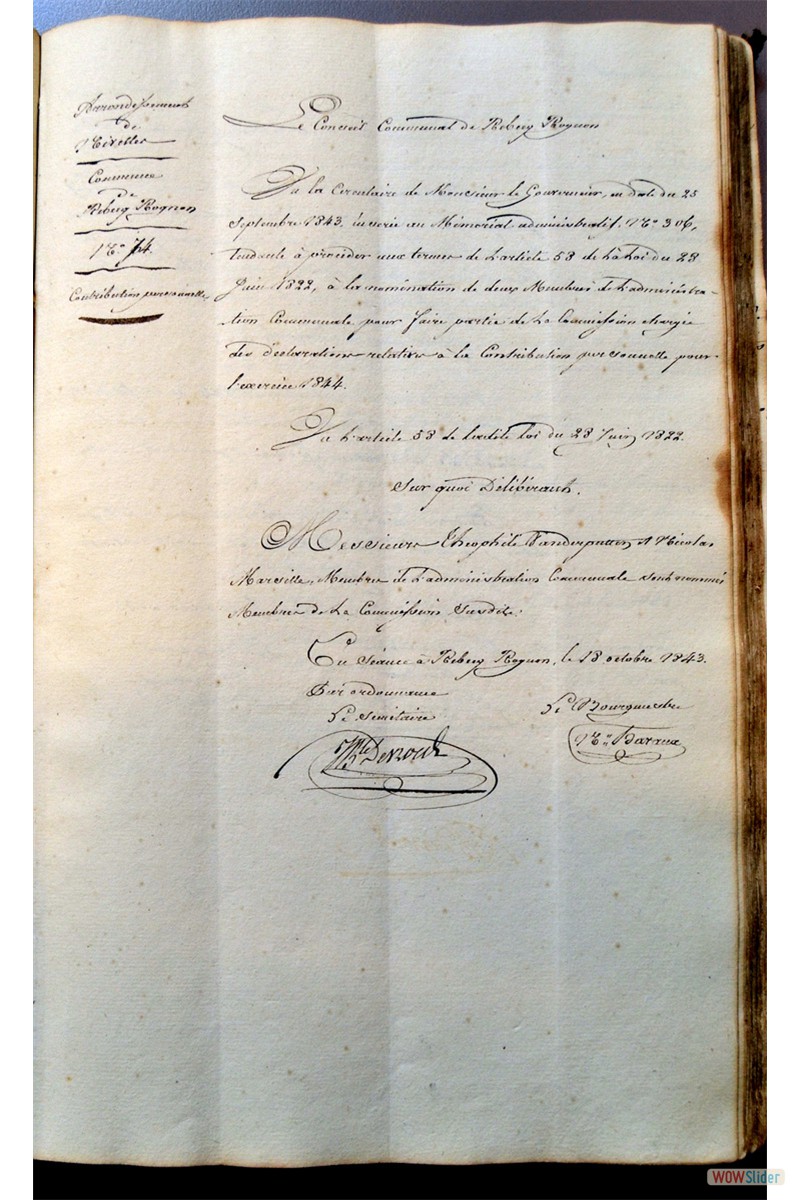 Arrondissement
de
Nivelles
Commune
de
Rebecq Rognon
N.o 74.
Contribution personnelle
Le Conseil Communal de Rebecq Rognon
Vu la Circulaire de Monsieur le Gouverneur, en date du 25
Septembre 1843, insérée au Mémorial administratif, N.o 306,
tendante à procéder aux termes de l'article 58 de la Loi du 28
Juin 1822, à la nomination de deux Membres de l'administra-
tion Communale pour faire partie de la Commission chargée
des déclarations relatives à la Contribution personnelle pour
l'exercice 1844.
Vu l'article 58 de ladite loi du 28 Juin 1822.
Sur quoi Délibérant.
Messieurs Théophile Vanderputten et Nicolas
Marseille, Membres de l'administration Communale sont nommés
Membres de la Commission Susdite.
En Séance à Rebecq Rognon, le 18 octobre 1843.
Par ordonnance
Le Bourgmestre
Le Secrétaire
WOWSlider